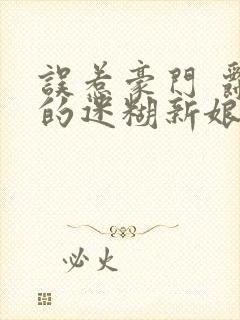 誤惹豪門
的迷糊新娘
必火